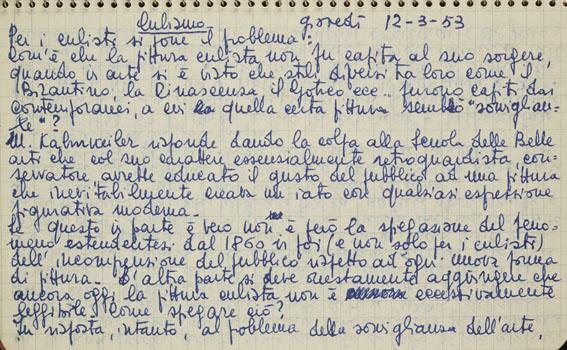 Cubismo - giovedì 12-3-53
Per i cubisti si pone il problema:
Com'è che la pittura cubista non fu capita al suo sorgere,
quando in arte si è visto che stili diversi tra loro come il
Bizantino, la Rinascenza, il Gotico ecc.. furono capiti dai
contemporanei, a cui quella certa pittura sembrò "somiglian-
te"?
M. Kahnweiler risponde dando la colpa alla Scuola delle Belle
arti che col suo carattere essenzialmente retroguardista, con-
servatore, avrebbe educato il gusto del pubblico ad una pittura
che inevitabilmente creava un iato con qualsiasi espressione
figurativa moderna.
Se questo in parte è vero non è però la spiegazione del feno-
meno estendentesi dal 1860 in poi (e non solo per i cubisti)
dell'incomprensione del pubblico rispetto ad ogni nuova forma
di pittura. D'altra parte si deve onestamente aggiungere che
ancora oggi la pittura cubista non è eccessivamente
leggibile. Come spiegare ciò?
In risposta, intanto, al problema della somiglianza dell'arte,